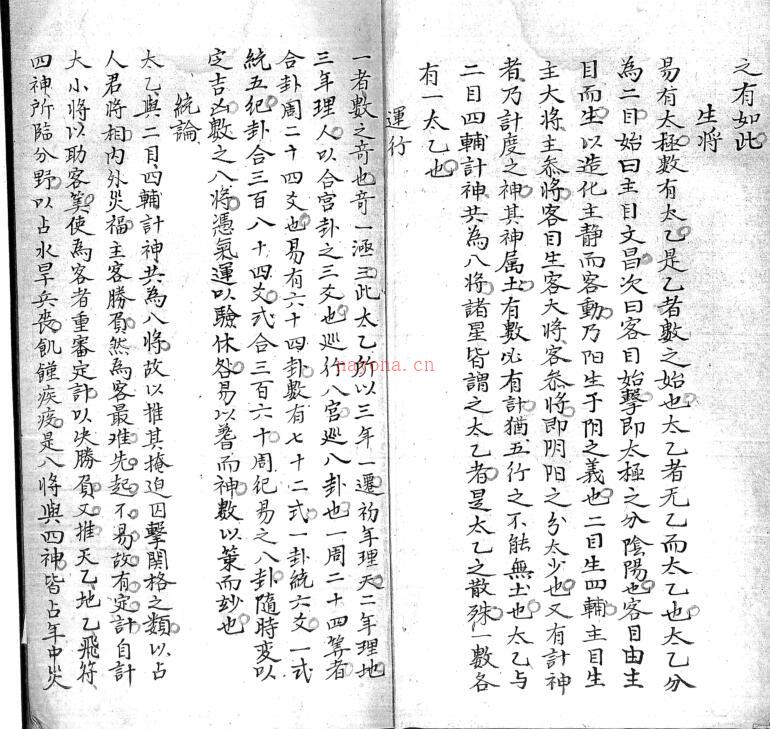 之有如此
生将
易有太極数有太乙是乙者數之始也太乙者无乙而太乙也太乙分
為二目始曰主目文昌次曰客目始擊即太極之分陰陽也客目由主
目而生以造化主静而客動乃阳生于阴之義也二目生四輔主目生
主大将主叅将客目生客大将客叅将即阴阳之分太少也又有計神
者乃計度之神其神属土有數必有計猶五行之不能無土也太乙与
二目四輔計神共為八將諸星皆謂之太乙者是太乙之散殊一數各
有一太乙也
運行
一者數之奇也奇一涵三此太乙所以三年一遷初年理天二年理地
三年理人以合宮卦之三爻也巡行八宮巡八卦也一周二十四筭者
合卦周二十四爻也易有六十四卦數有七十二式一卦統六爻一式
統五纪卦合三百八十四爻式合三百六十周纪易之八卦隨時变以
定吉凶數之八將憑氣運以驗休咎易以蓍而神數以策而妙也
統論
太乙與二目四輔計神共為八將故以推其掩迫囚擊関格之類以占
人君将相内外災福主客勝負然為客最难先起不易故有定計自計
大小将以助客筭使為客者重審定計以决勝負又推天乙地乙飛符
四神所臨分野以占水旱兵喪飢饉疾疫是八將與四神皆占年中災
nayona.cn